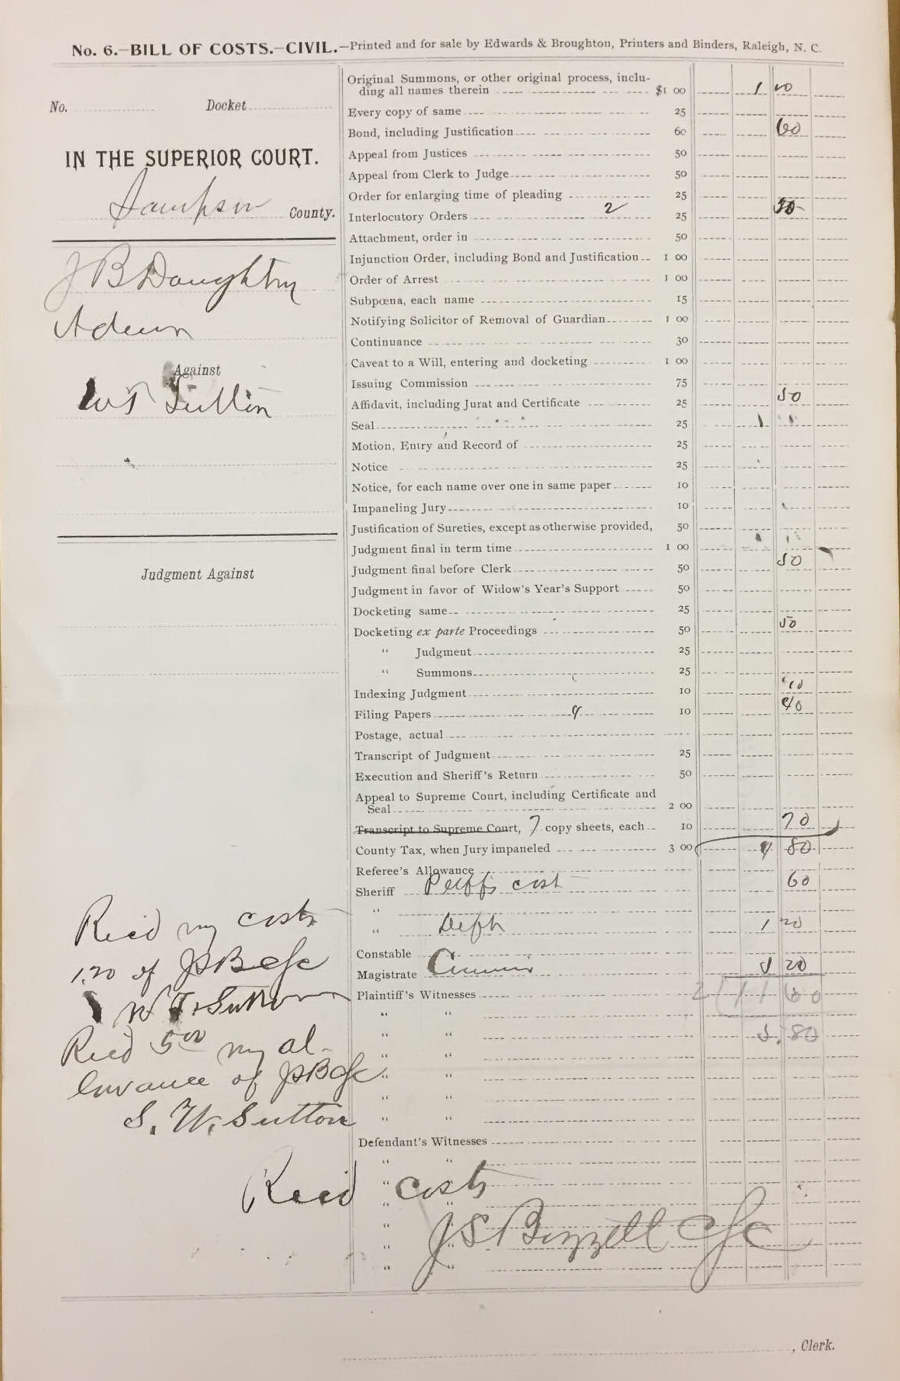 No. 6.—BILL OF COSTS.—CIVIL.—Printed and for sale by Edwards & Broughton, Printers and Binders, Raleigh, N. C.
No. Docket
IN THE SUPERIOR COURT.
Sampson County.
J B Daughtry
Admr
Against
W T Sutton
Judgment Against
Original Summons, or other original process, inclu-
ding all names therein $1 00 1 00
Every copy of same 25
Bond, including Justification 60 60
Appeal from Justices 50
Appeal from Clerk to Judge 50
Order for enlarging time of pleading 25
Interlocutory Orders 2 25 50
Attachment, order in 50
Injunction Order, including Bond and Justification 1 00
Order of Arrest 1 00
Subpœna, each name 15
Notifying Solicitor of Removal of Guardian 1 00
Continuance 30
Caveat to a Will, entering and docketing 1 00
Issuing Commission 75
Affidavit, including Jurat and Certificate 25 50
Seal 25
Motion, Entry and Record of 25
Notice 25
Notice, for each name over one in same paper 10
Impaneling Jury 10
Justification of Sureties, except as otherwise provided, 50
Judgment final in term time 1 00
Judgment final before Clerk 50 50
Judgment in favor of Widow's Year's Support 50
Docketing same 25
Docketing ex parte Proceedings 50 50
" Judgment 25
" Summons 25
Indexing Judgment 10 10
Filing Papers 4 10 40
Postage, actual
Transcript of Judgment 25
Execution and Sheriff's Return 50
Appeal to Supreme Court, including Certificate and
Seal 2 00
Transcript to Supreme Court, 7 copy sheets, each 10 70
County Tax, when Jury impaneled 3 00 4 80
Referee's Allowance
Sheriff Plffs cost 60
"
" Defts 1 20
Constable
Magistrate 5 20
Plaintiff's Witnesses 2 11 60
" "
" " 5.80
" "
" "
" "
" "
Defendant's Witnesses
"
"
"
"
" "
" "
Recd my costs
1.20 of JSB csc
W T Sutton
Recd 5.00 my al-
lowance of JSB csc
S. W. Sutton
Recd costs
J S Bizzell csc
, Clerk.